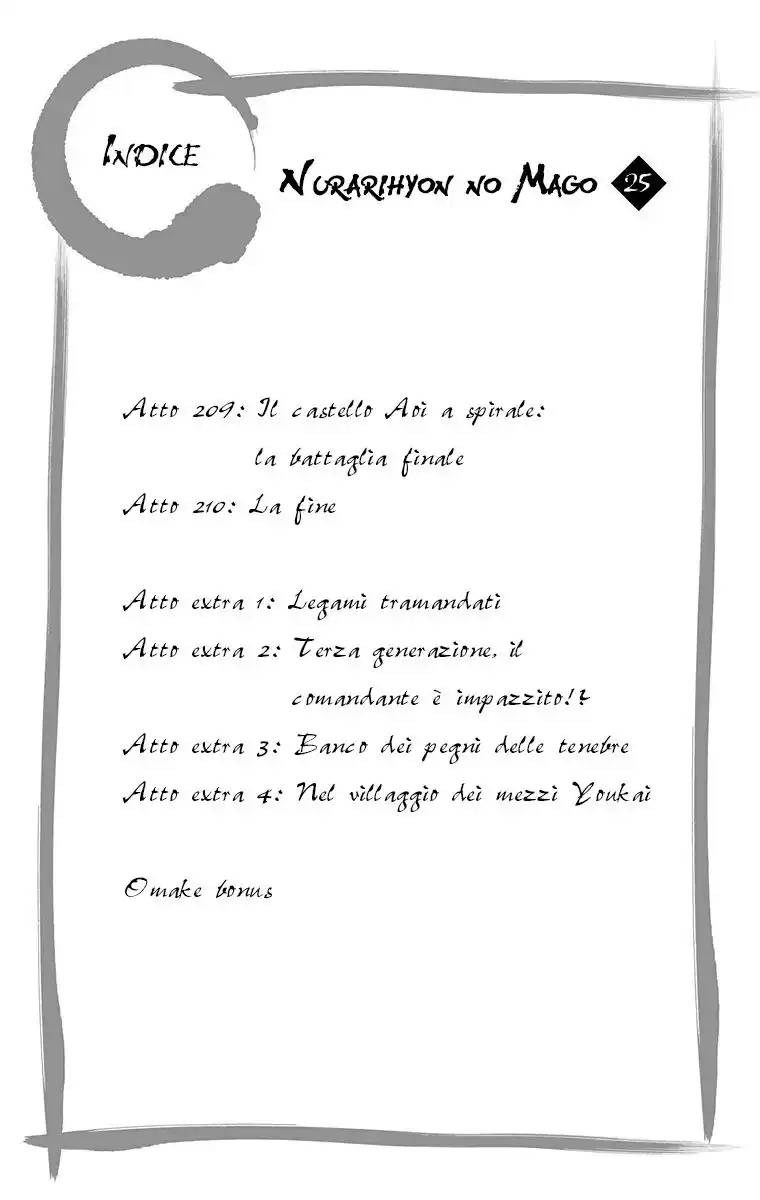 Indice
Nurarihyon no Mago 25
Atto 209: Il castello Aoi a spirale:
la battaglia finale
Atto 210: La fine
Atto extra 1: Legami tramandati
Atto extra 2: Terza generazione, il
comandante è impazzito!?
Atto extra 3: Banco dei pegni delle tenebre
Atto extra 4: Nel villaggio dei mezzi Youkai
Omake bonus